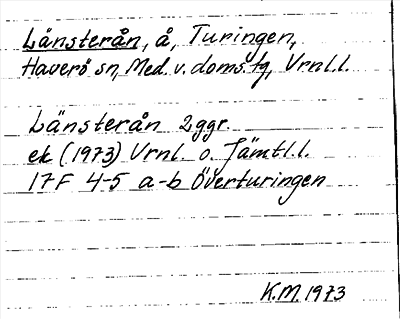 Länsterån, å, Turingen,
Haverö sn, Med. v. doms.fg, Vrnl.l.
Länsterån 2ggr.
ek (1973) Vrnl. o. Jämtl.l.
17F 4-5 a-b Överturingen
K.M. 1973